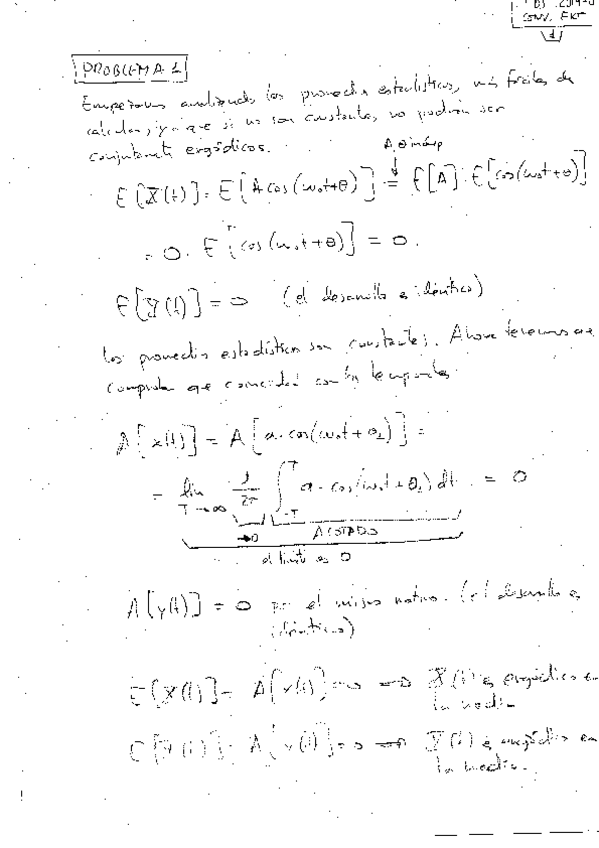 CONV. EXT
1
PROBLEMA 1
Empezamos analizando los promedios estadísticos, más fáciles de
calcular, ya que si no son constantes, no podrán ser
conjuntamente ergódicos.
A, θ indep
E[X(t)] = E[A cos(ω₀t+θ)] = E[A] · E[cos(ω₀t+θ)]
= 0 · E[cos(ω₀t+θ)] = 0.
E[Y(t)] = 0 (el desarrollo es idéntico)
Los promedios estadísticos son constantes. Ahora tenemos que
comprobar que coinciden con los temporales
A[x(t)] = A[a·cos(ω₀t+θ₁)] =
= lim T→∞ 1/2T ∫_{-T}^{T} a·cos(ω₀t+θ₁) dt = 0
→0 ACOTADO
el límite es 0
A[y(t)] = 0 por el mismo motivo. (el desarrollo es
idéntico)
E[X(t)] = A[x(t)] = 0 ⇒ X(t) es ergódico en
la media
E[Y(t)] = A[y(t)] = 0 ⇒ Y(t) es ergódico en
la media.